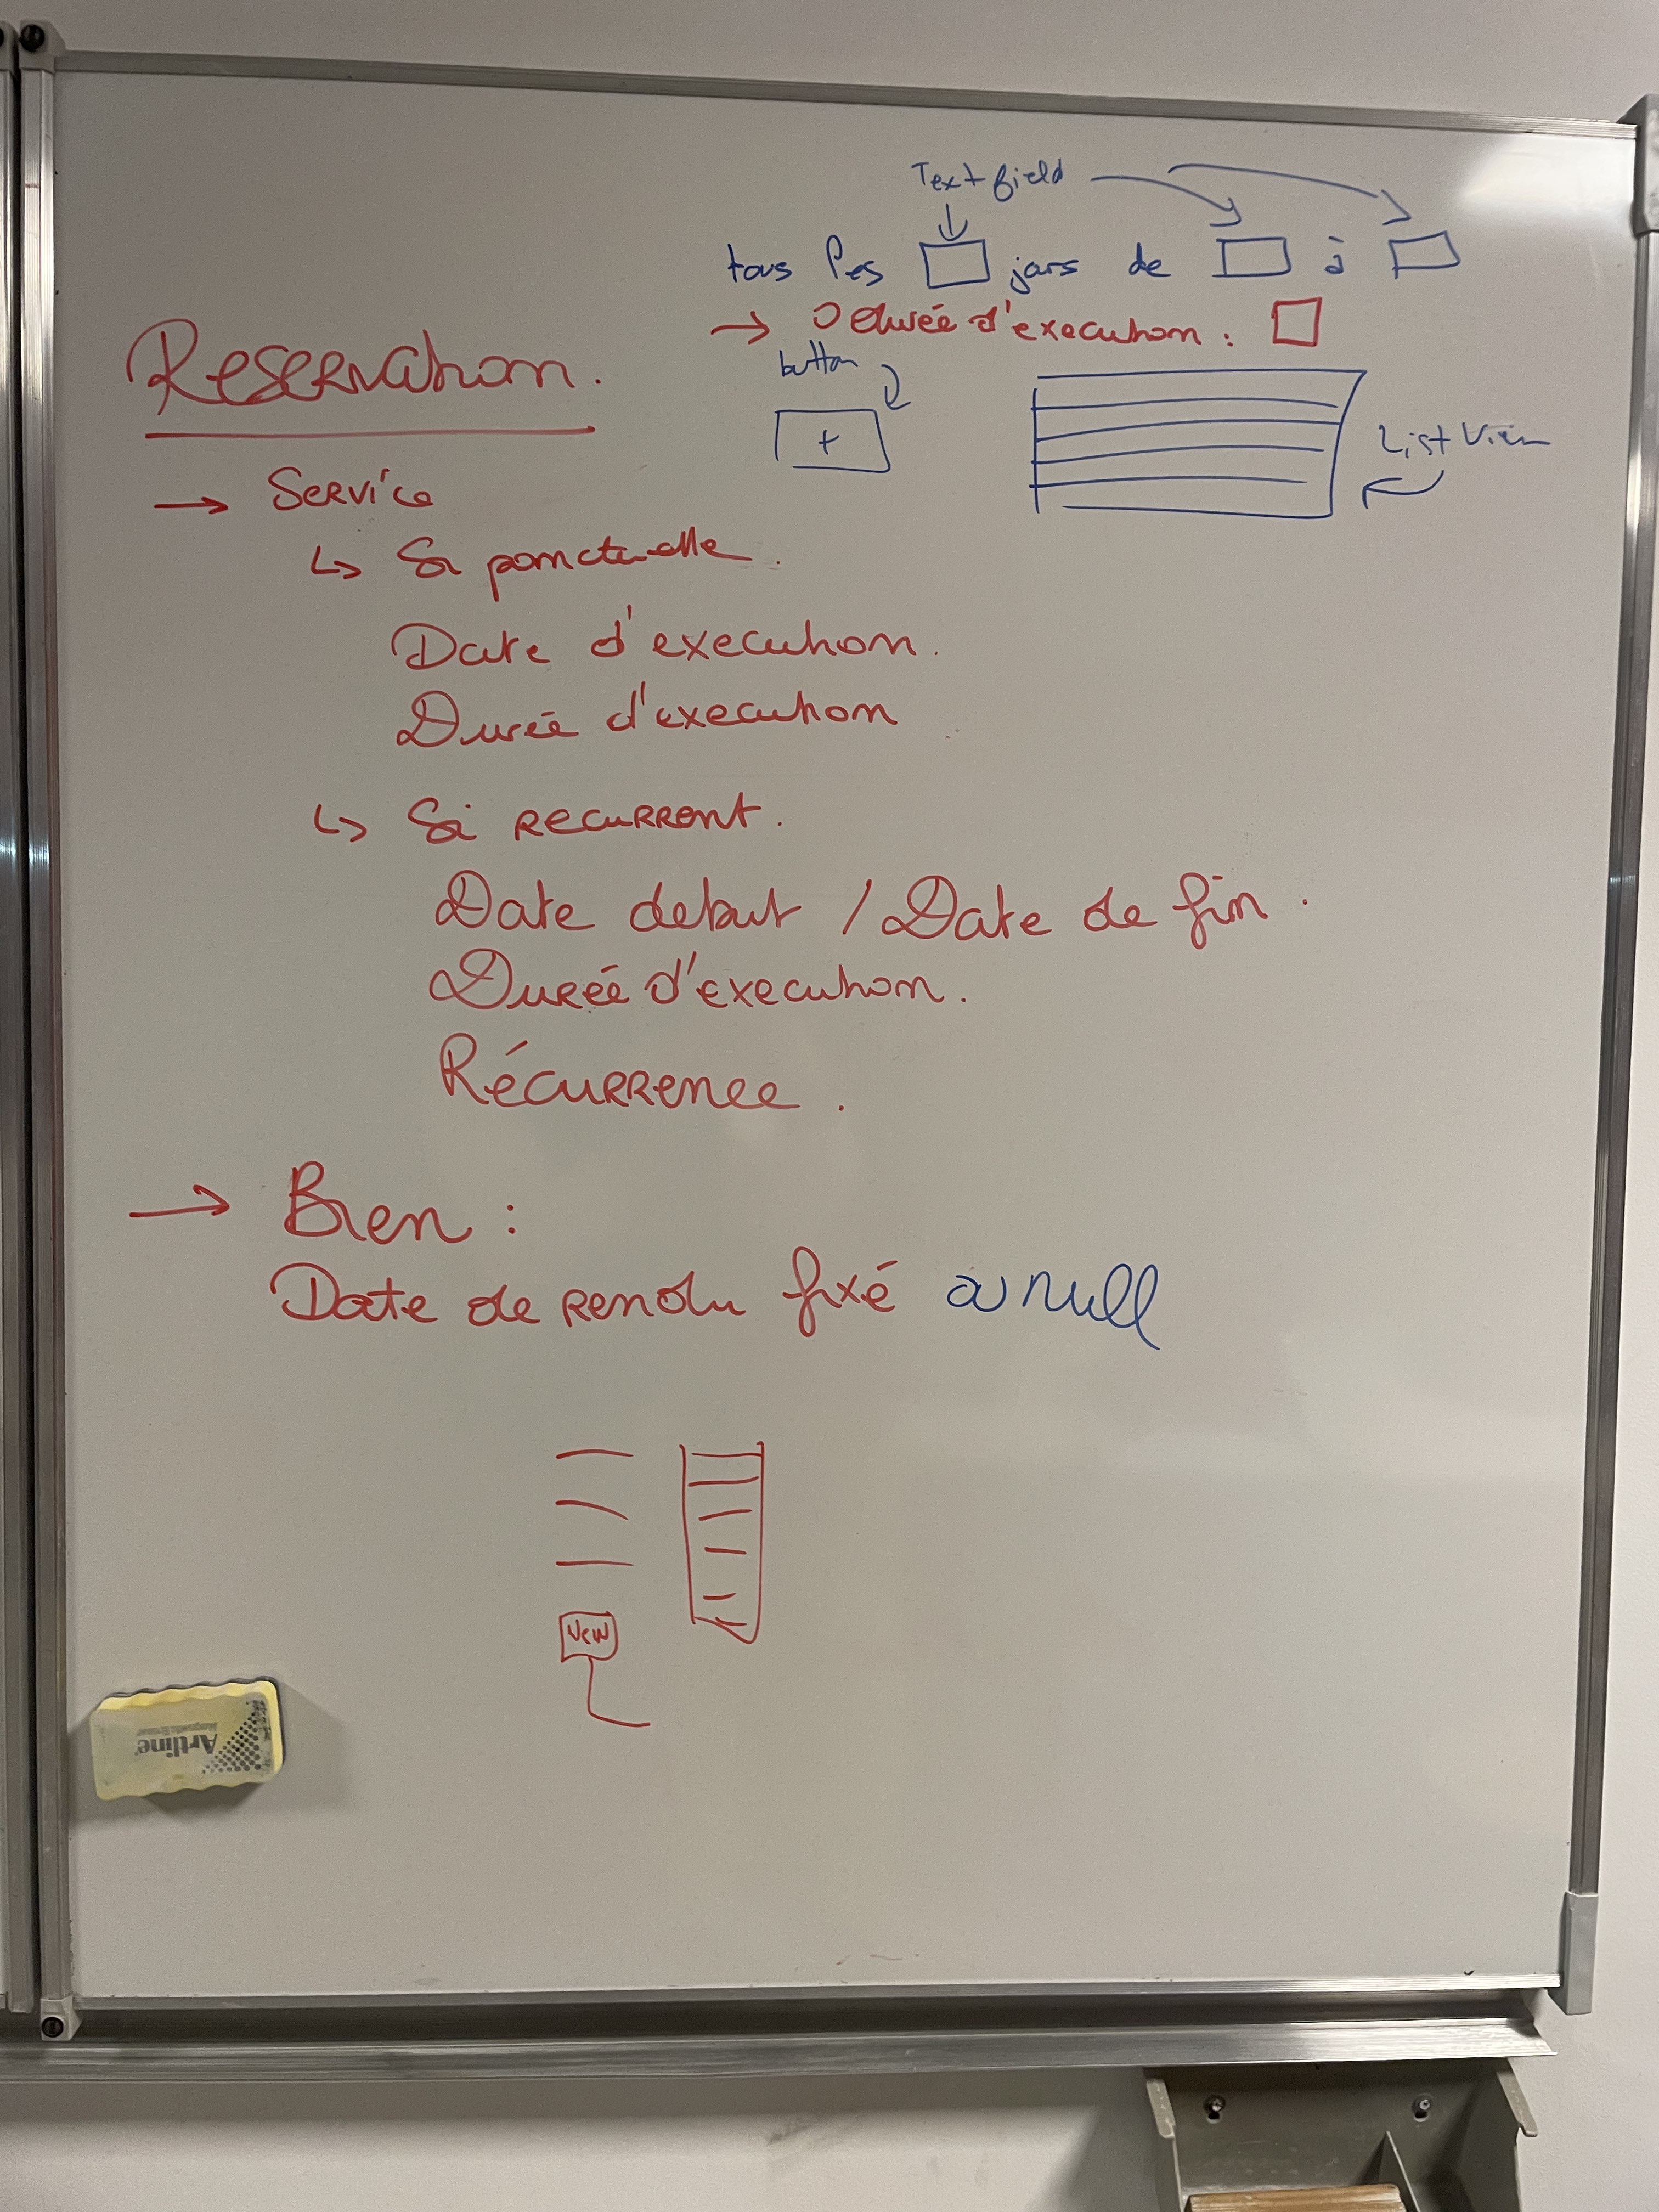 Text field
tous les jours de à
→ Durée d'execution :
button
+
List View
Reservation.
→ Service
↳ Si ponctuelle.
Date d'execution.
Durée d'execution
↳ Si recurrent.
Date debut / Date de fin.
Durée d'execution.
Récurrence.
→ Bien :
Date de rendu fixé ou null
New
Artline